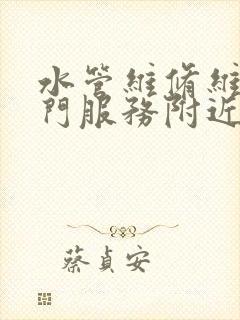 水管維脩維
門服務附近
蔡貞安